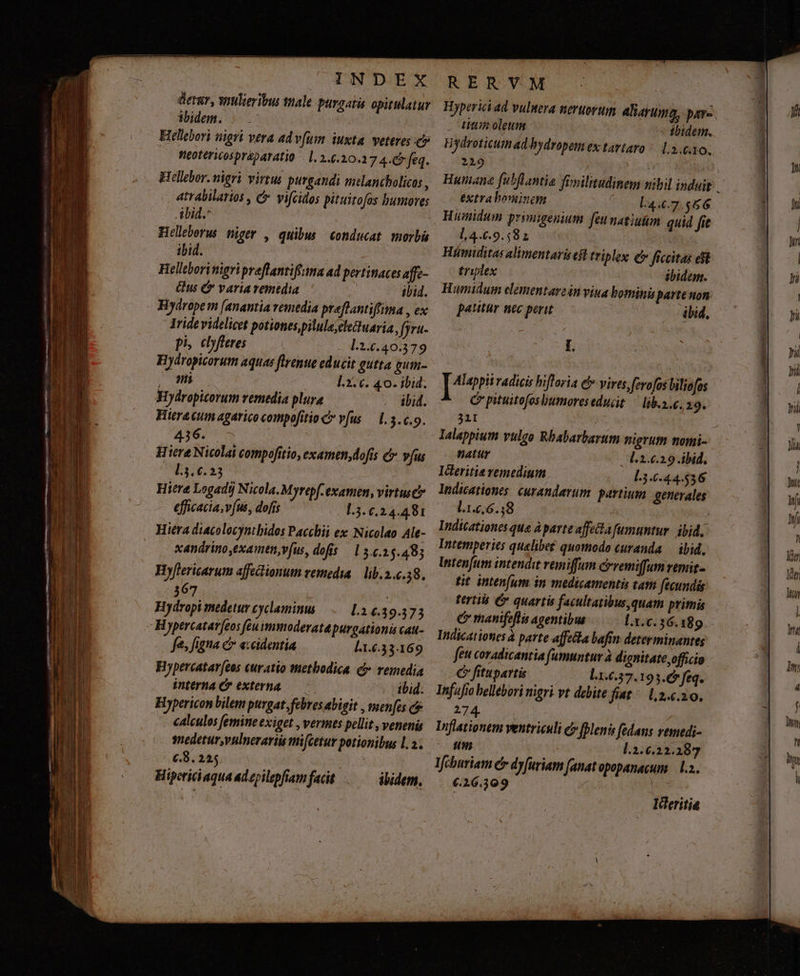 INDEX RERVM
detur, mulieribus male purgatis opitulatur
ibidem.
Hellebori nigri vera ad vsum iuxta veteres &
neotericos præparatio l.2.c.20.274.& seq.
Hellebor. nigri virtus purgandi melancholicos,
atrabilarios, & viscidos pituitosos humores
ibid.
Helleborus niger, quibus conducat morbis
ibid.
Hellebori nigri præstantissima ad pertinaces affe-
ctus & varia remedia ibid.
Hydropem sanantia remedia præstantissima, ex
Iride videlicet potiones, pilulæ, electuaria, syru-
pi, clysteres l.2.c.40.379
Hydropicorum aquas strenue educit gutta gum-
mi l.2.c. 40. ibid.
Hydropicorum remedia plura ibid.
Hiera cum agarico compositio & vsus l.3.c.9.
436.
Hiera Nicolai compositio, examen, dosis & vsus
l.3.c.23
Hiera Logadij Nicola. Myreps. examen, virtus &
efficacia, vsus, dosis l.3.c.24.481
Hiera diacolocynthidos Pacchii ex Nicolao Ale-
xandrino, examen, vsus, dosis l 3.c.25.483
Hystericarum affectionum remedia lib.2.c.38.
367
Hydropi medetur cyclaminus l.2 c.39.373
Hypercatarseos seu immoderatæ purgationis cau-
sæ, signa & accidentia l.1.c.33.169
Hypercatarseos curatio methodica & remedia
interna & externa ibid.
Hypericon bilem purgat, febres abigit, menses &
calculos feminæ exiget, vermes pellit, venenis
medetur, vulnerariis miscetur potionibus l.2.
c.8.225
Hiperici aqua ad epilepsiam facit ibidem.
Hyperici ad vulnera neruorum aliarumq, par-
tium oleum ibidem.
Hydroticum ad hydropem ex tartaro l.2.c.10.
229
Humanæ substantiæ similitudinem nihil induit
extra hominem l.4.c.7. 566
Humidum primigenium seu natiuum quid sit
l.4.c.9.582
Humiditas alimentaris est triplex & siccitas est
triplex ibidem.
Humidum elementare in viua hominis parte non
patitur nec perit ibid.
I.
Ialappii radicis historia & vires, serosos biliosos
& pituitosos humores educit lib.2.c.29.
311
Ialappium vulgo Rhabarbarum nigrum nomi-
natur l.2.c.29.ibid.
Icteritiæ remedium l.3.c.44.536
Indicationes curandarum partium generales
l.1.c.6.38
Indicationes quæ à parte affecta sumuntur ibid.
Intemperies quælibet quomodo curanda ibid.
Intensum intendit remissum & remissum remit-
tit intensum in medicamentis tam secundis
tertiis & quartis facultatibus, quam primis
& manifestis agentibus l.1.c.36.189
Indicationes à parte affecta basin determinantes
seu coradicantia sumuntur à dignitate, officio
& situ partis l.1.c.37.193.& seq.
Infusio hellebori nigri vt debite fiat l.2.c.20.
274
Inflationem ventriculi & splenis sedans remedi-
um l.2.c.22.287
Ischuriam & dysuriam sanat opopanacum l.2.
c.26.309
Icteritiæ